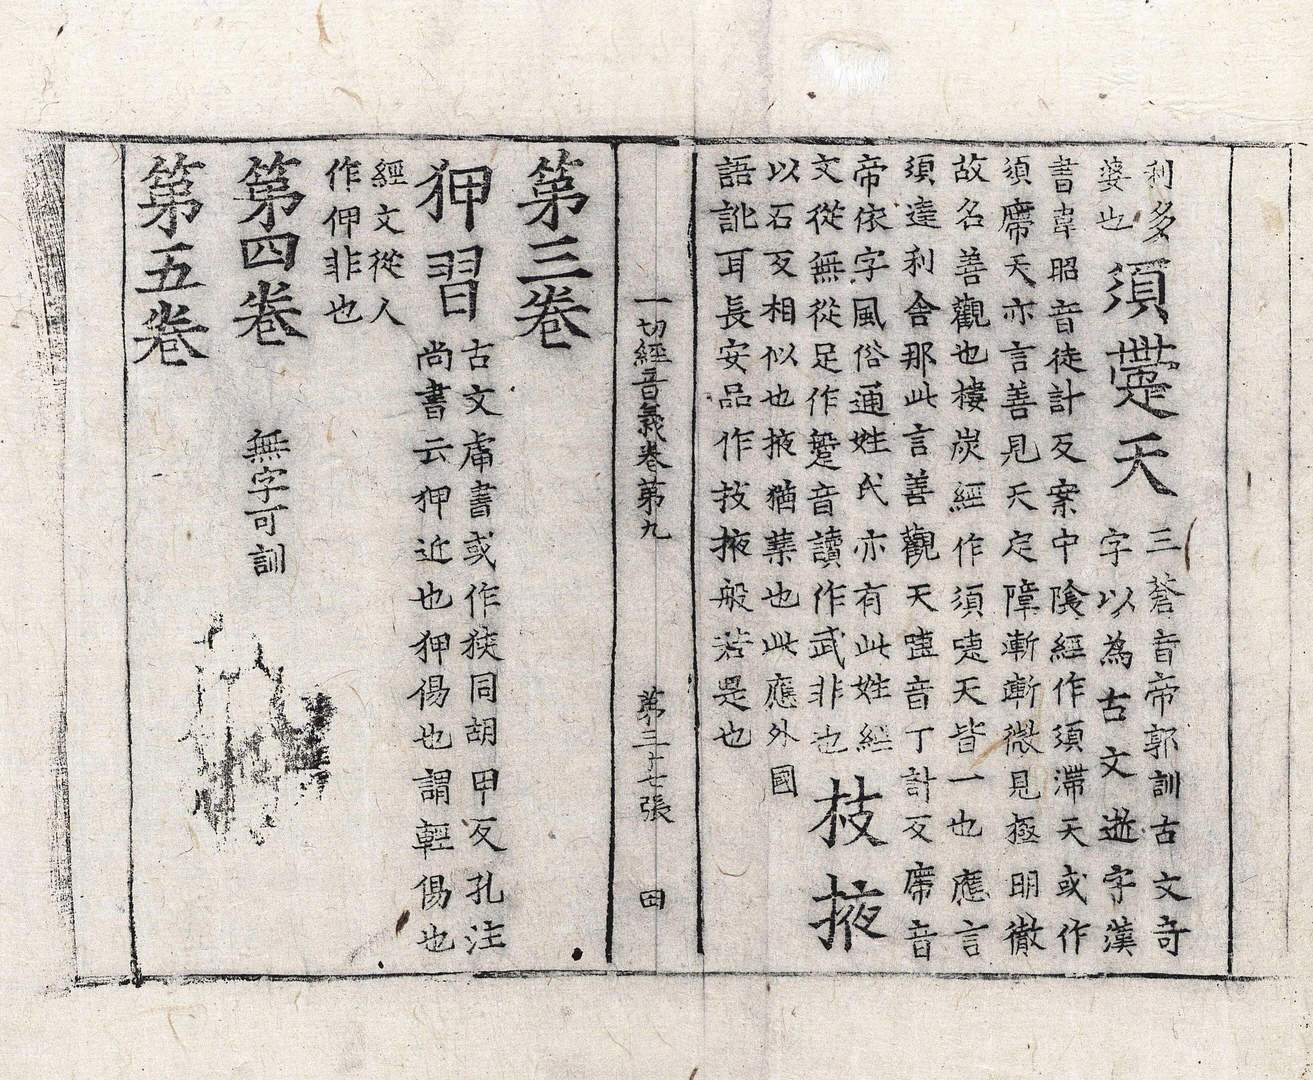 利多
婆也
須疐天
三蒼音帝郭訓古文奇
字以為古文逝字漢
書韋昭音徒計反案中陰經作須滯天或作
須廗天亦言善見天定障漸漸微見極明徹
故名善觀也樓炭經作須嚏天皆一也應言
須達利舍那此言善觀天嚏音丁計反廗音
帝依字風俗通姓氏亦有此姓經
文從無從足作音讀作武非也
枝掖
以石反相似也掖猶葉也此應外國
語訛耳長安品作技掖般若是也
一切經音義卷第九 第三十七張 田
第三卷
狎習
古文書或作狹同胡甲反孔注
尚書云狎近也狎傷也謂輕傷也
經文從人
作伊非也
第四卷 無字可訓
第五卷